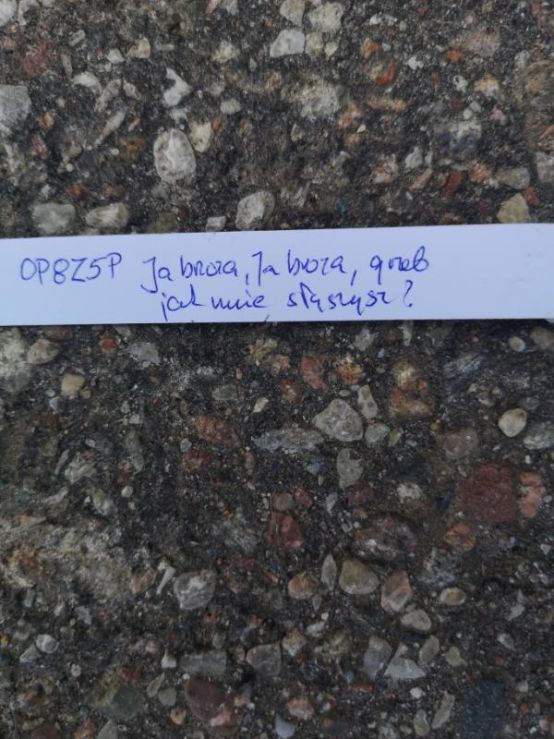 OP8Z5P Ja brzoza, Ja brzoza, grab
jak mnie słyszysz?